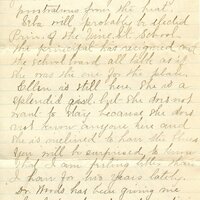 prostrations from the heat.
Erla will probably be elected
Prin. of the Vine St. School.
The principal has resigned and
the school board all talk as if
she was the one for the place.
Ellen is still here. She is a
splendid girl but she does not
want to stay because she does
not know anyone here and
she is inclined to have the blues
You will be surprised to know
that I am getting better than
I have for two years lately.
Dr. Woods has been giving me